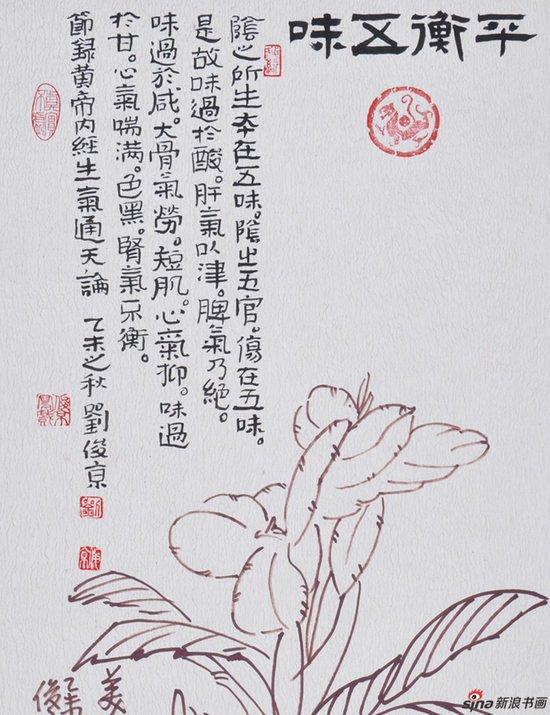 平衡五味
陰之所生本在五味。陰之五官。傷在五味。
是故味過於酸。肝氣以津。脾氣乃絕。
味過於咸。大骨氣勞。短肌。心氣抑。味過
於甘。心氣喘满。色黑。腎氣不衡。
節録黄帝内經生氣通天論 乙未之秋 劉俊京
美
乙未
俊
sina新浪书画